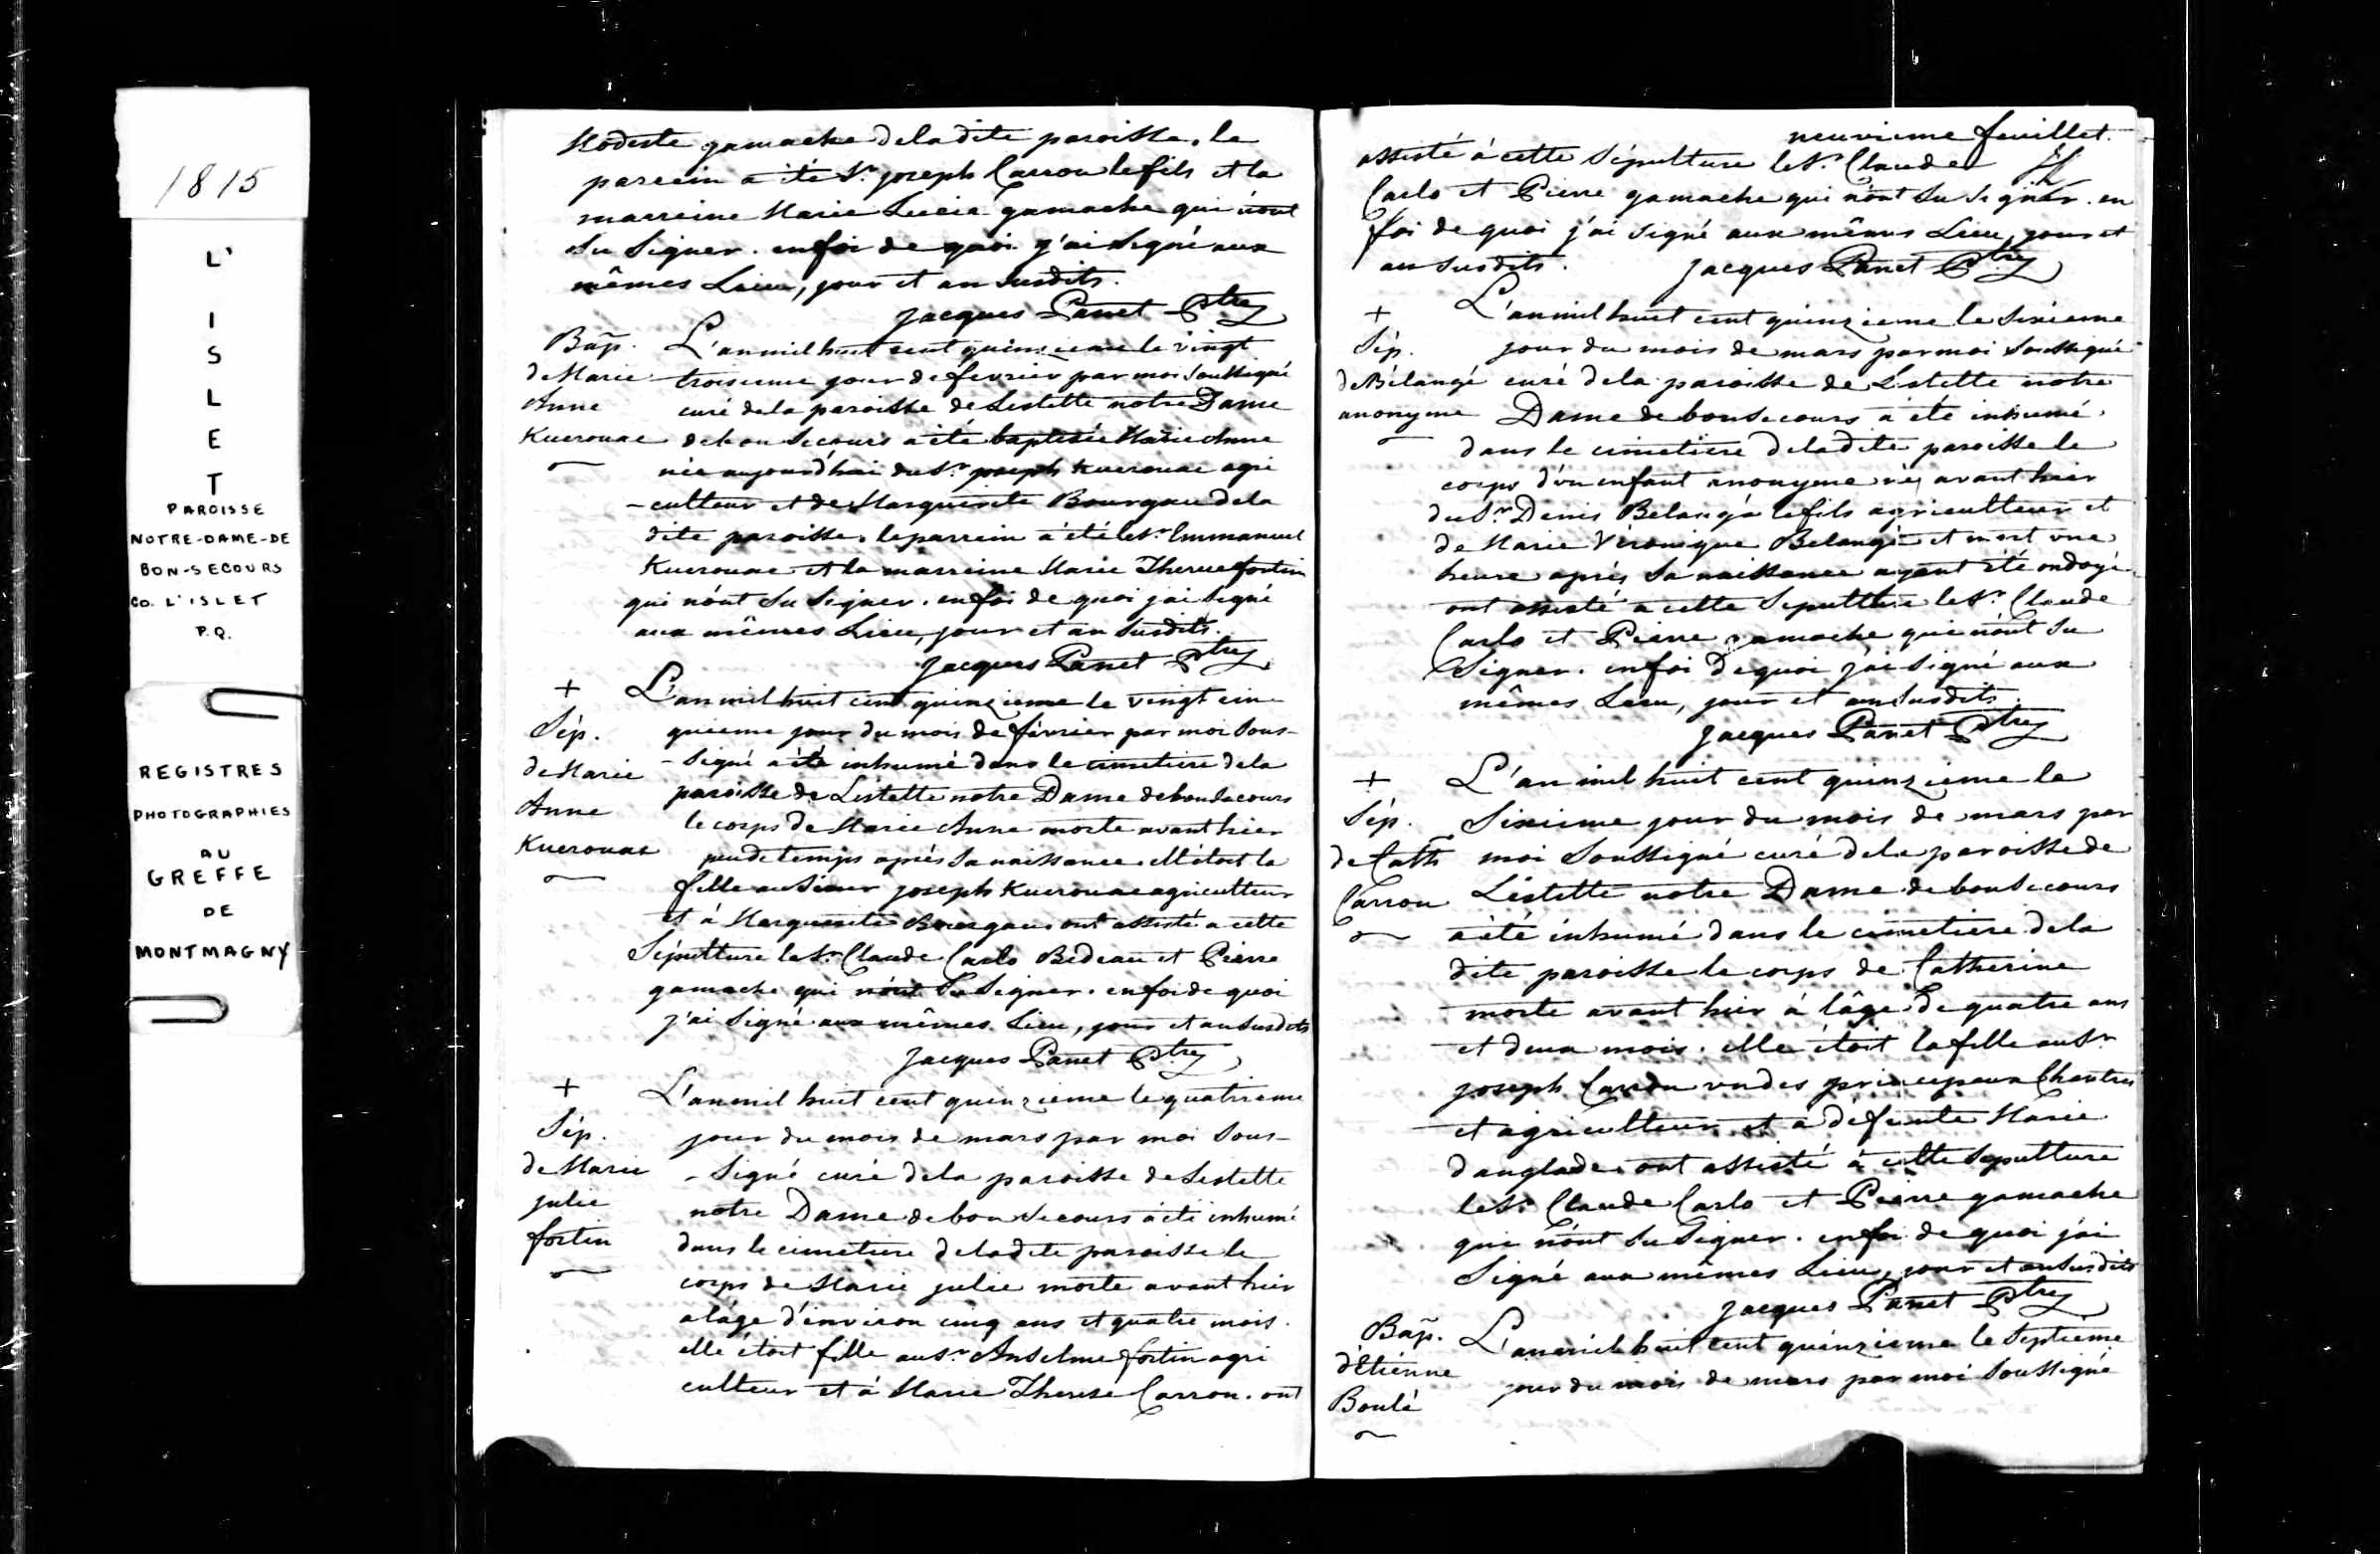 1815
L'
I
S
L
E
T
PAROISSE
NOTRE-DAME-DE
BON-SECOURS
CO. L'ISLET
P.Q.
REGISTRES
PHOTOGRAPHIES
AU
GREFFE
DE
MONTMAGNY
Modeste gamache dela dite paroisse. le
parrein a été Sr. joseph Carron le fils et la
marreine Marie Lucie gamache qui n'ont
su signer. en foi de quoi j'ai signé aux
mêmes Lieu, jour et an susdits.
jacques Panet Ptre
Bap̃.
de Marie
Anne
Kuerouac
L'an mil huit cent quinzieme le vingt
troisieme jour de fevrier par moi soussigné
curé dela paroisse de Lislette notre Dame
de bon secours a été baptisée Marie Anne
née aujourd'hui du Sr. joseph Kuerouac agri
-culteur et de Marguerite Bourgau dela
dite paroisse. le parrein a été le Sr. Emmanuel
Kuerouac et la marreine Marie Therese fortin
qui n'ont su signer. en foi de quoi j'ai signé
aux mêmes Lieu, jour et an susdits.
jacques Panet Ptre
+
Sép.
de Marie
Anne
Kuerouac
L'an mil huit cent quinzieme le vingt cin
quieme jour du mois de février par moi sous-
-signé a été inhumé dans le cimetiere dela
paroisse de Lislette notre Dame de bon secours
le corps de Marie Anne morte avant hier
peu de temps après sa naissance. elle étoit la
fille au Sieur joseph Kuerouac agriculteur
et à Marguerite Bourgau. ont assisté a cette
Sépulture le Sr. Claude Carlo Bedeau et Pierre
gamache qui n'ont su signer. en foi de quoi
j'ai signé aux mêmes Lieu, jour et an susdits
jacques Panet Ptre
+
Sép.
de Marie
julie
fortin
L'an mil huit cent quinzieme le quatrieme
jour du mois de mars par moi sous-
-signé curé dela paroisse de Lislette
notre Dame de bon secours a été inhumé
dans le cimetiere dela dite paroisse le
corps de Marie julie morte avant hier
a l'âge d'environ cinq ans et quatre mois.
elle étoit fille au Sr. Anselme fortin agri
culteur et à Marie Therese Carron. ont
neuvieme feuillet.
assisté à cette sépulture le Sr. Claude
Carlo et Pierre gamache qui n'ont su signer. en
foi de quoi j'ai signé aux mêmes Lieu, jour et
an susdits.
jacques Panet Ptre
+
Sép.
de Bélangé
anonyme
L'an mil huit cent quinzieme le sixieme
jour du mois de mars par moi soussigné
curé dela paroisse de Lislette notre
Dame de bon secours a été inhumé
dans le cimetiere dela dite paroisse le
corps d'un enfant anonyme né avant hier
du Sr. Denis Belangé le fils agriculteur et
de Marie Véronique Belangé et mort une
heure après sa naissance ayant été ondoyé.
ont assisté a cette Sepulture le Sr. Claude
Carlo et Pierre gamache qui n'ont su
Signer. en foi de quoi j'ai signé aux
mêmes Lieu, jour et an susdits.
jacques Panet Ptre
+
Sép.
de Cath
Carron
L'an mil huit cent quinzieme le
Sixieme jour du mois de mars par
moi soussigné curé dela paroisse de
Lislette notre Dame de bon secours
a été inhumé dans le cimetiere dela
dite paroisse le corps de Catherine
morte avant hier à l'âge de quatre ans
et deux mois. elle étoit la fille au Sr
joseph Carron un des principaux Chantres
et agriculteur et à défunte Marie
danglade. ont assisté à cette Sepulture
le Sr. Claude Carlo et Pierre gamache
qui n'ont su signer. en foi de quoi j'ai
Signé aux mêmes Lieu, jour et an susdits
jacques Panet Ptre
Bap̃.
d'Etienne
Boulé
L'an mil huit cent quinzieme le septieme
jour du mois de mars par moi soussigné